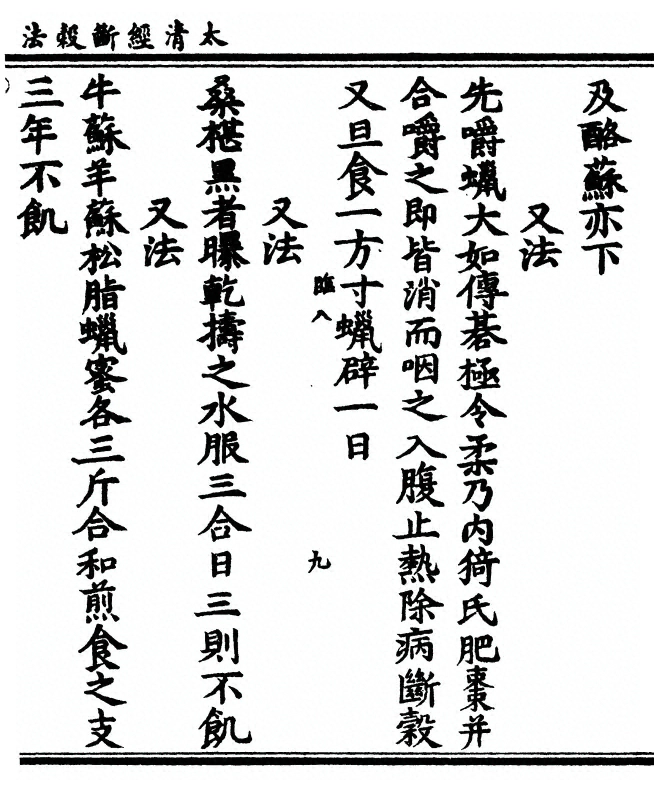 太清經斷穀法
及酪蘇亦下
又法
先嚼蠟大如傅碁極令柔乃内猗氏肥棗并
合嚼之即皆消而咽之入腹止熱除病斷穀
又旦食一方寸蠟辟一日
臨八
九
又法
桑椹黑者曝乾擣之水服三合日三則不飢
又法
牛蘇羊蘇松脂蠟蜜各三斤合和煎食之支
三年不飢